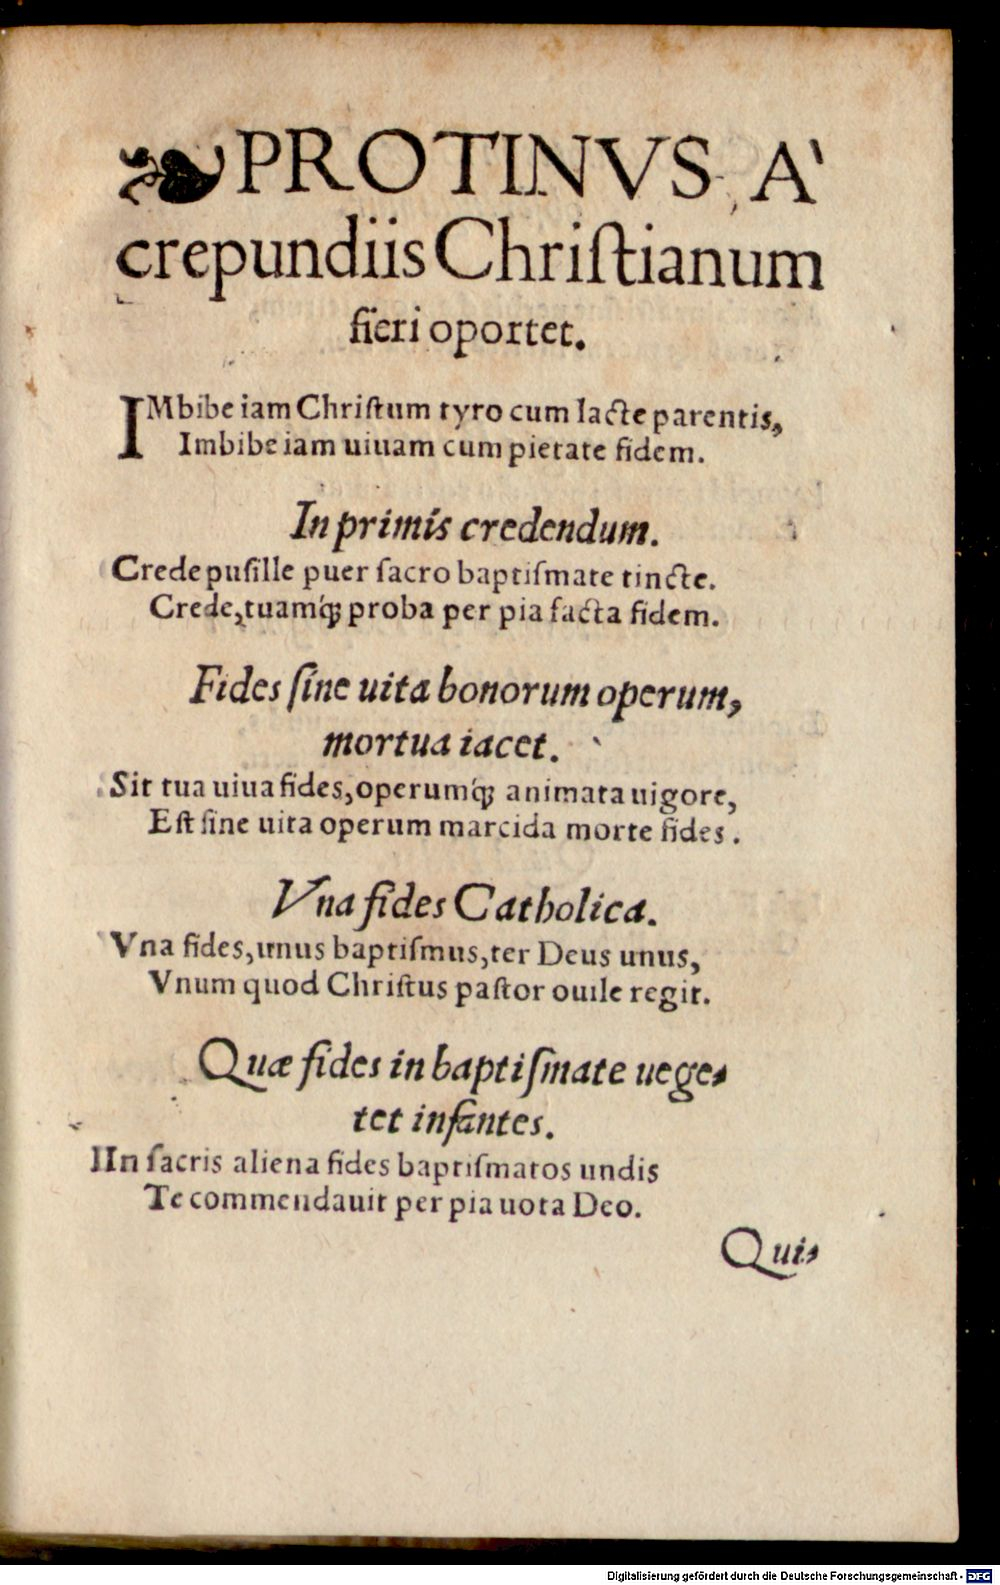 ❧PROTINVS A'
crepundiis Chriſtianum
fieri oportet.
IMbibe iam Chriſtum tyro cum lacte parentis,
Imbibe iam uiuam cum pietate fidem.
In primis credendum.
Crede puſille puer ſacro baptiſmate tincte.
Crede, tuamq́; proba per pia facta fidem.
Fides ſine uita bonorum operum,
mortua iacet.
Sit tua uiua fides, operumq́; animata uigore,
Eſt ſine uita operum marcida morte fides.
Vna fides Catholica.
Vna fides, unus baptiſmus, ter Deus unus,
Vnum quod Chriſtus paſtor ouile regit.
Quæ fides in baptiſmate uege-
tet infantes.
IIn ſacris aliena fides baptiſmatos undis
Te commendauit per pia uota Deo.
Quis
Digitalisierung gefördert durch die Deutsche Forschungsgemeinschaft - DFG